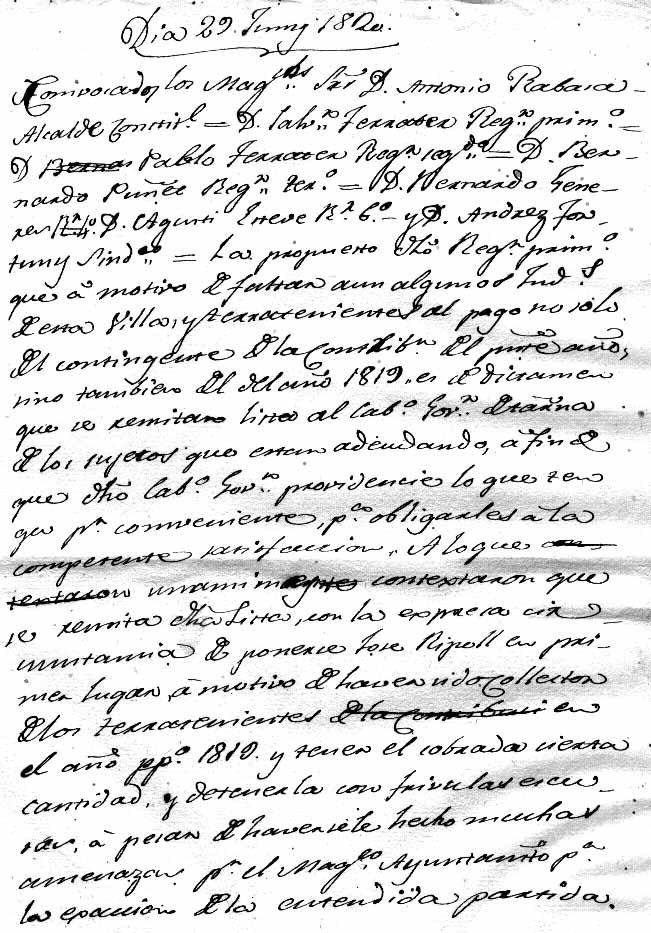 Dia 29. Juny 1820.
Convocados los Mag.cos Srs D. Antonio Rabasa
Alcalde Constit.l = D. Salv.r Ferrater Reg.r prim.o =
D Pablo Ferrater Reg.r seg.do = D. Ber-
nardo Puñet Reg.r ter.o = D. Bernardo Gene-
res R.r 4.o D. Agusti Esteve R.r 6.o - y D. Andrez For-
tuny Sind.co = Ha propuesto dho Reg.r prim.o
que â motivo de faltar aun algunos Ind.s
de esta Villa, y terratenientes al pago no solo
del contingente de la Contrib.n del prñte año,
sino tambien del del año 1819. es de dictamen
que se remita lista al Cab.o Gov.r de Tarña
de los sujetos que estan adeudando, â fin de
que dho Cab.o Gov.r providencie lo que ten
ga p.r conveniente, p.a obligarles â la
competente satisfaccion. A lo que con-
textaron unanim contextaron que
se remita dha Lista, con la expresa cir-
cunstancia de ponerse Jose Ripoll en pri-
mer lugar, â motivo de haver sido Collector
de los terratenientes de la Contribuci en
el año pp.o 1819. y tener el cobrada cierta
cantidad, y detenerla con frivulas escu-
sas, â pesar de haversele hecho muchas
amenazas p.r el Mag.co Ayuntam.to p.a
la exaccion de la entendida partida.